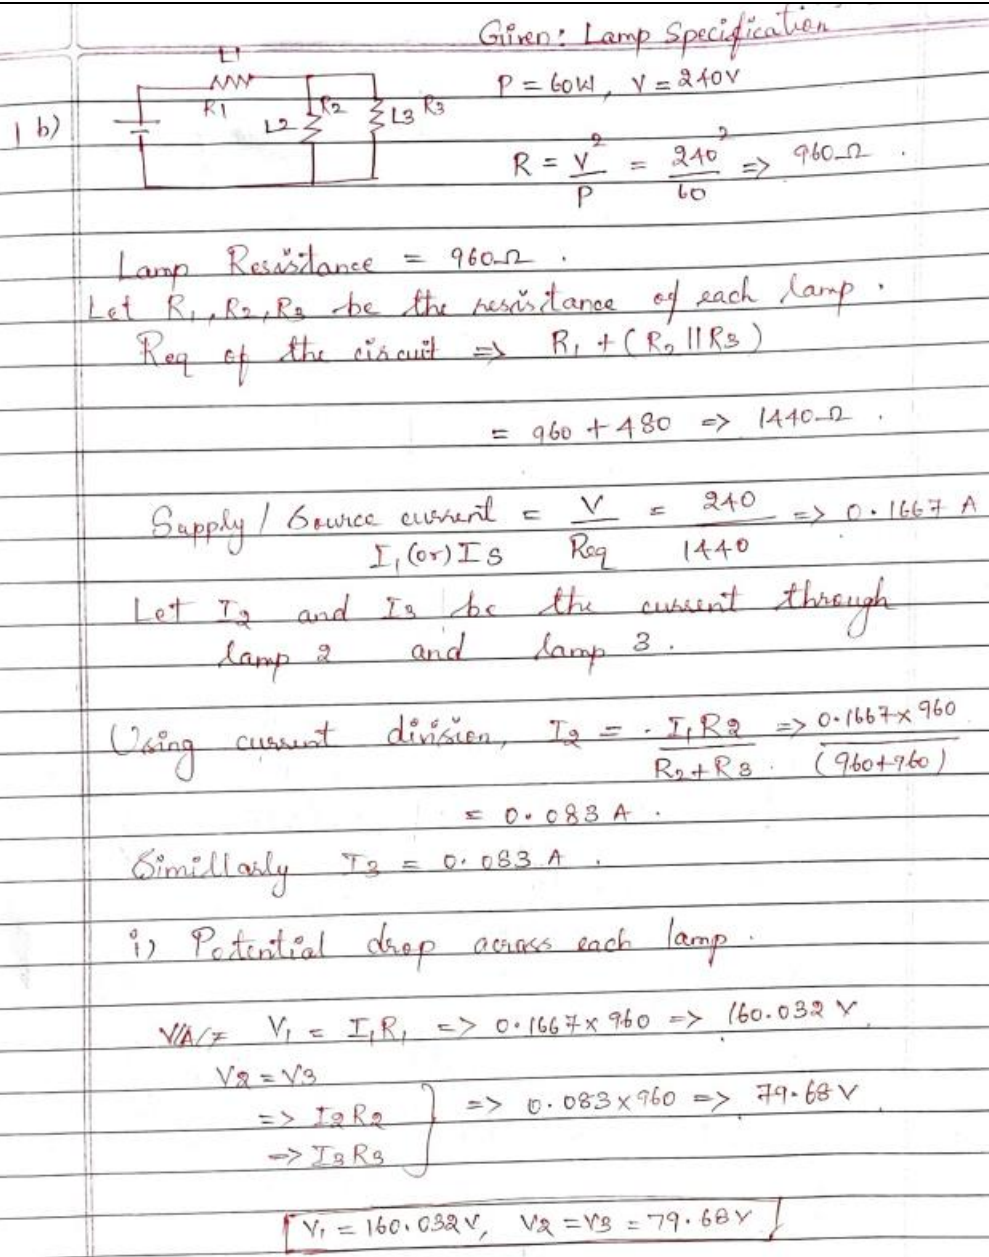 Given: Lamp Specification
L1
P = 60W, V = 240V
R1
R2
L2
L3 R3
1 b)
R = V² / P = 240² / 60 => 960Ω .
Lamp Resistance = 960Ω .
Let R₁, R₂, R₃ be the resistance of each lamp .
Req of the circuit => R₁ + (R₂ || R₃)
= 960 + 480 => 1440Ω .
Supply / Source current = V / Req = 240 / 1440 => 0.1667 A
I₁ (or) IS
Let I₂ and I₃ be the current through
lamp 2 and lamp 3 .
Using current division, I₂ = I₁R₂ / R₂+R₃ . => 0.1667 x 960 / (960+960)
= 0.083 A .
Simillarly I₃ = 0.083 A .
i) Potential drop across each lamp .
V₁ = I₁R₁ => 0.1667 x 960 => 160.032 V
V₂ = V₃
=> I₂R₂
=> 0.083 x 960 => 79.68 V
=> I₃R₃
V₁ = 160.032V, V₂ = V₃ = 79.68V